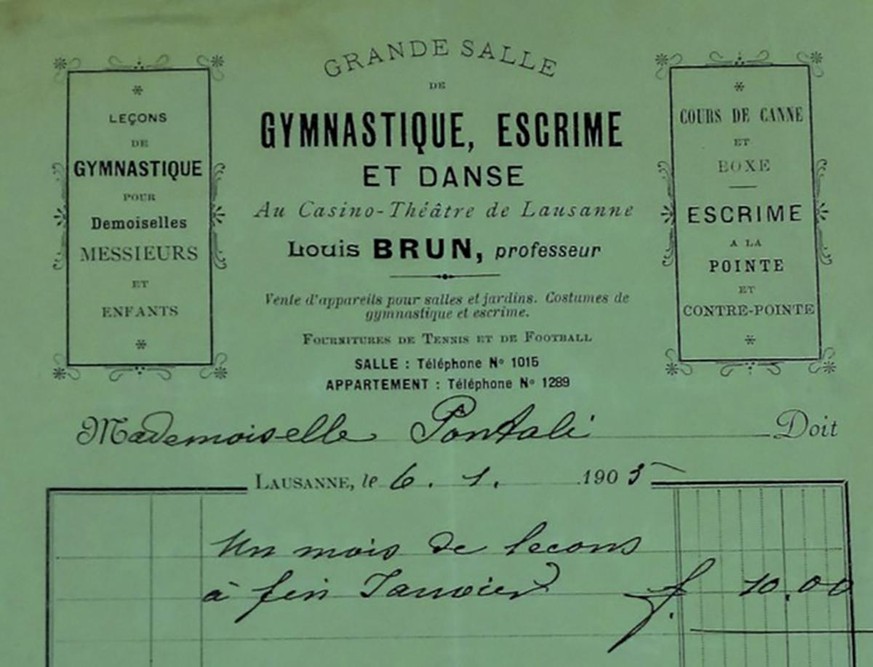 GRANDE SALLE
DE
GYMNASTIQUE, ESCRIME
ET DANSE
Au Casino-Théâtre de Lausanne
Louis BRUN, professeur
Vente d'appareils pour salles et jardins. Costumes de
gymnastique et escrime.
FOURNITURES DE TENNIS ET DE FOOTBALL
SALLE : Téléphone No 1015
APPARTEMENT : Téléphone No 1289
LEÇONS
DE
GYMNASTIQUE
POUR
Demoiselles
MESSIEURS
ET
ENFANTS
COURS DE CANNE
ET
BOXE
ESCRIME
A LA
POINTE
ET
CONTRE-POINTE
Mademoiselle Pontali Doit
LAUSANNE, le 6. 1. 1905
Un mois de lecons
à fin Janvier f. 10.00